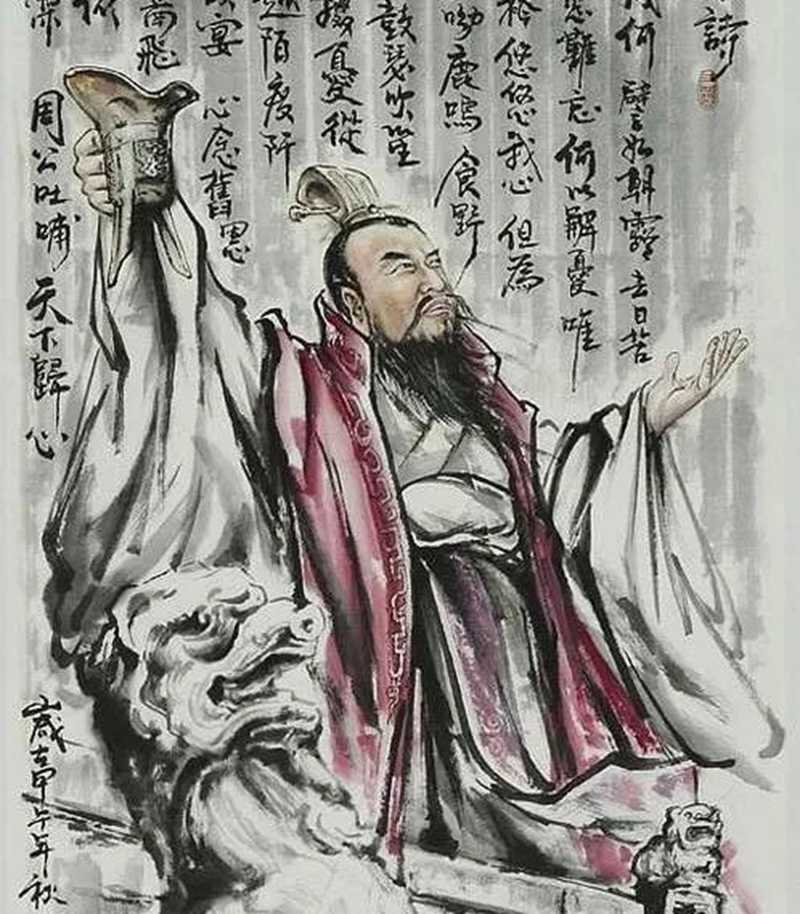 詩
幾何 譬如朝露 去日苦
思難忘 何以解憂 唯
衿 悠悠我心 但為
呦鹿鳴 食野
鼓瑟吹笙
掇 憂從
越陌度阡
宴 心念舊恩
南飛
依
深 周公吐哺 天下歸心
歲在甲午年秋